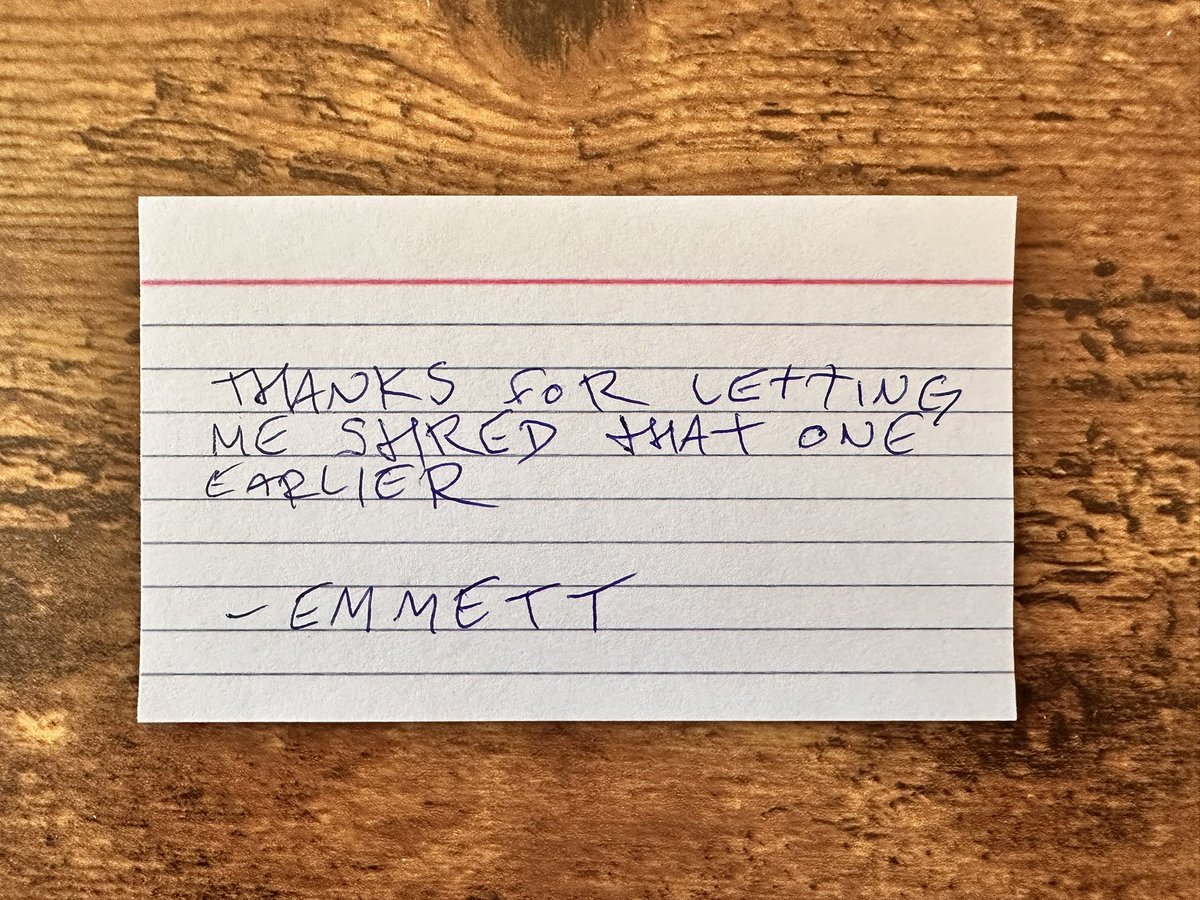 THANKS FOR LETTING
ME SHRED THAT ONE
EARLIER
- EMMETT